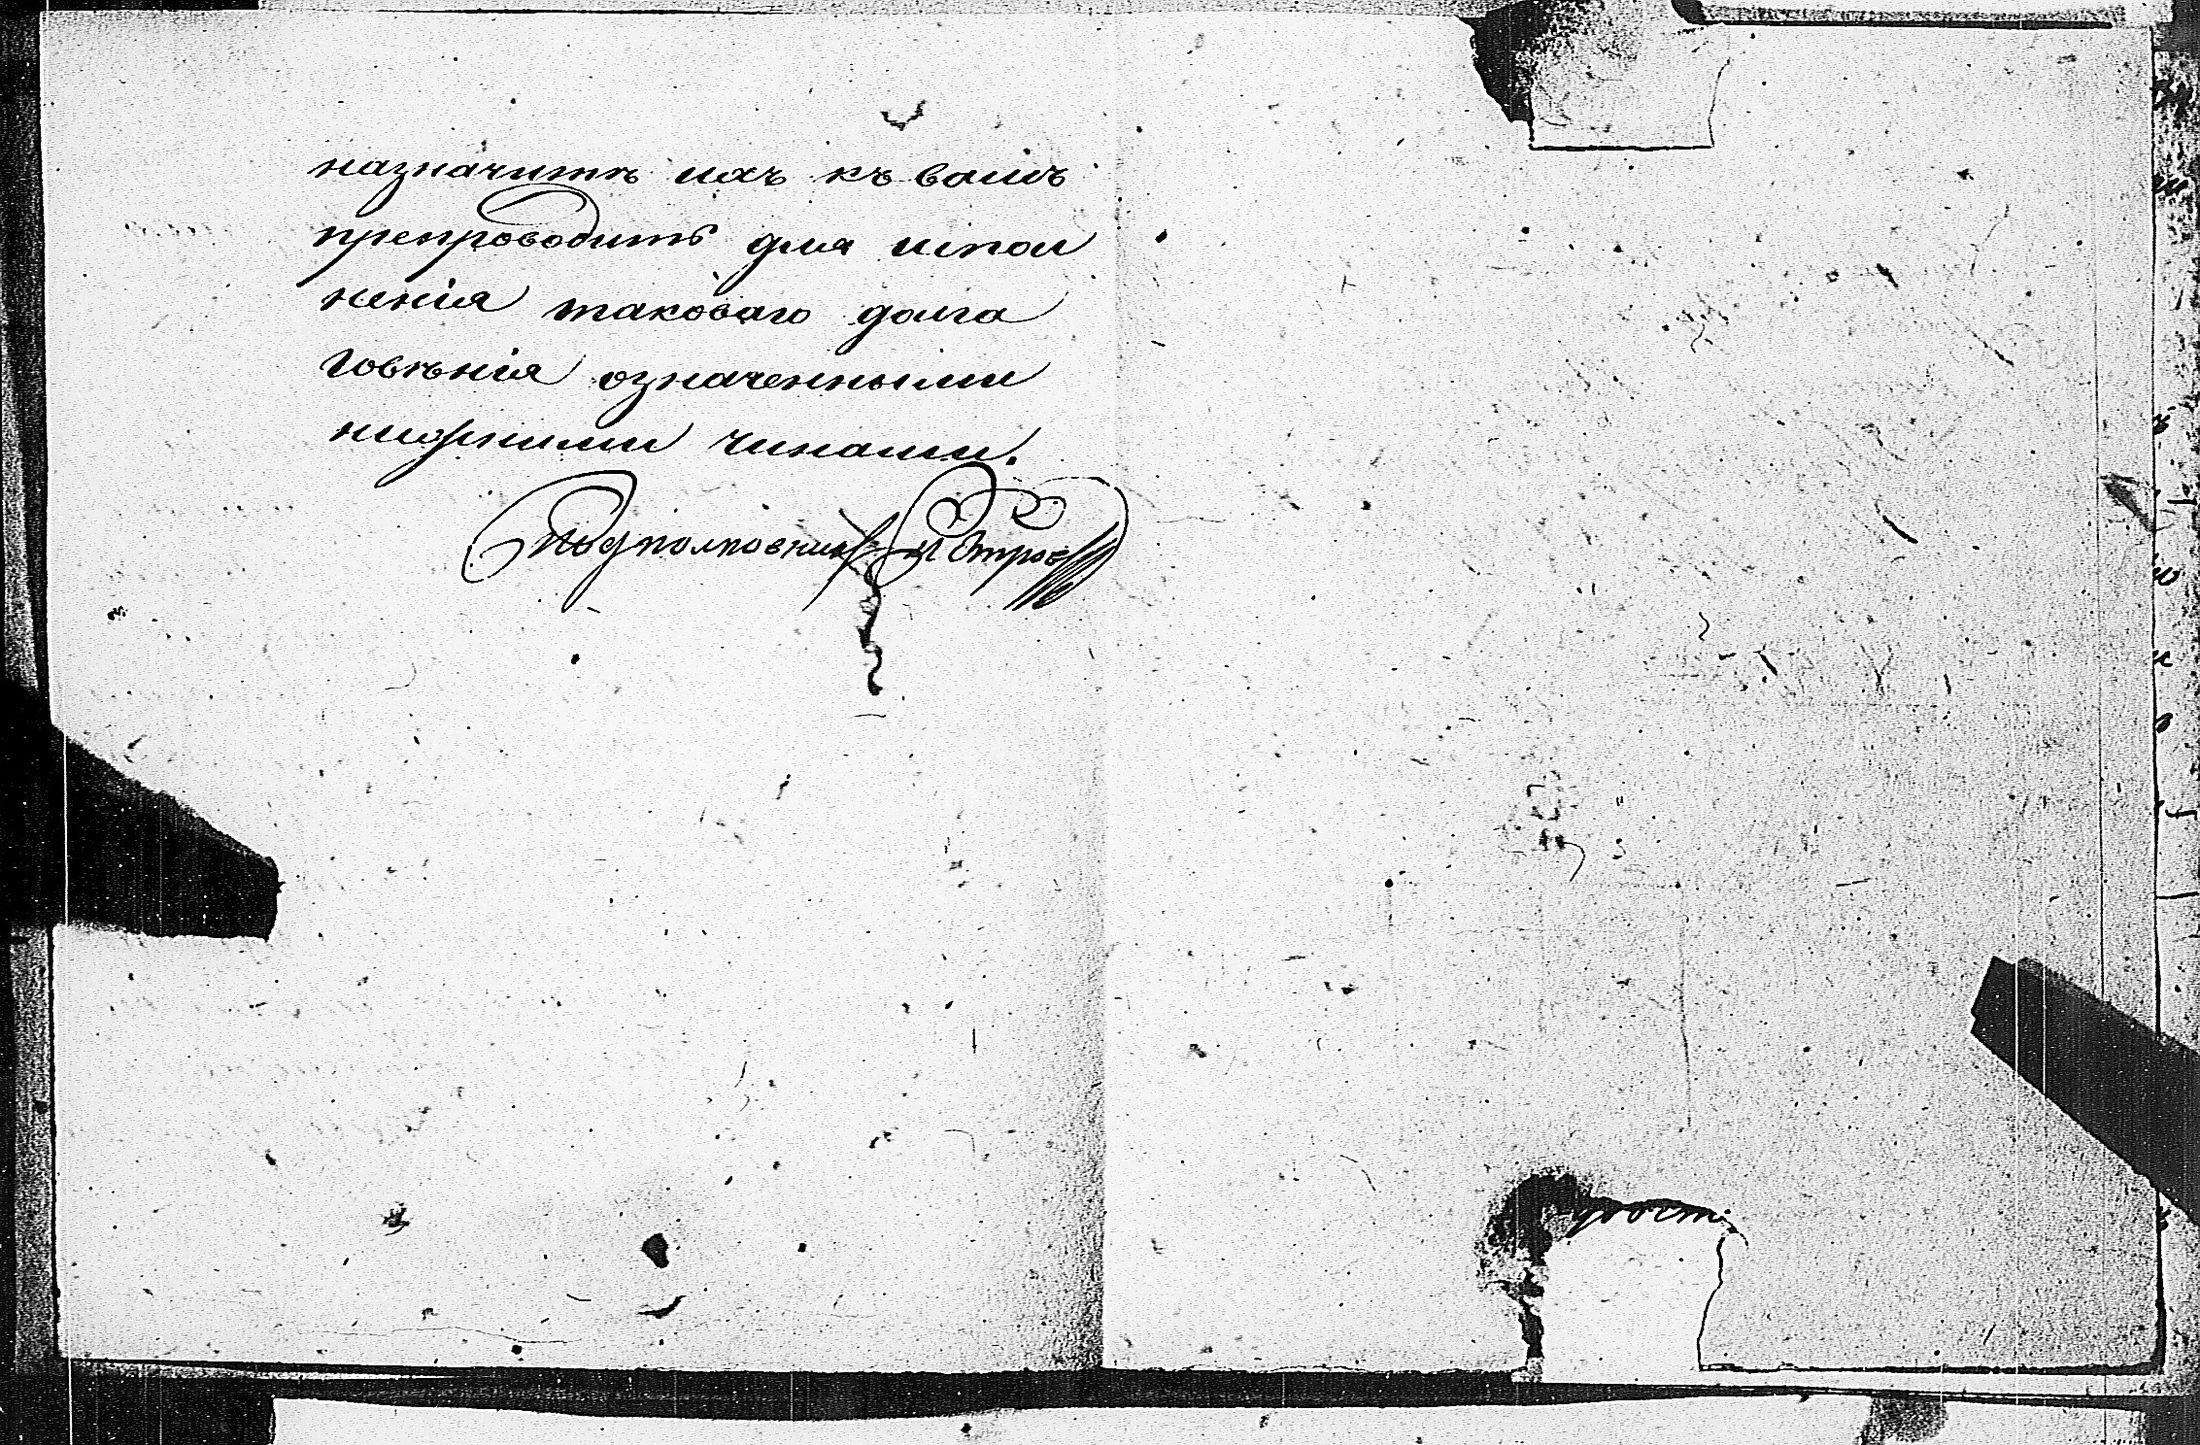 назначить ихъ къ вамъ
препроводить для испол
ненія таковаго долга
говѣнія означенными
нижними чинами.
Подполковникъ Петровъ